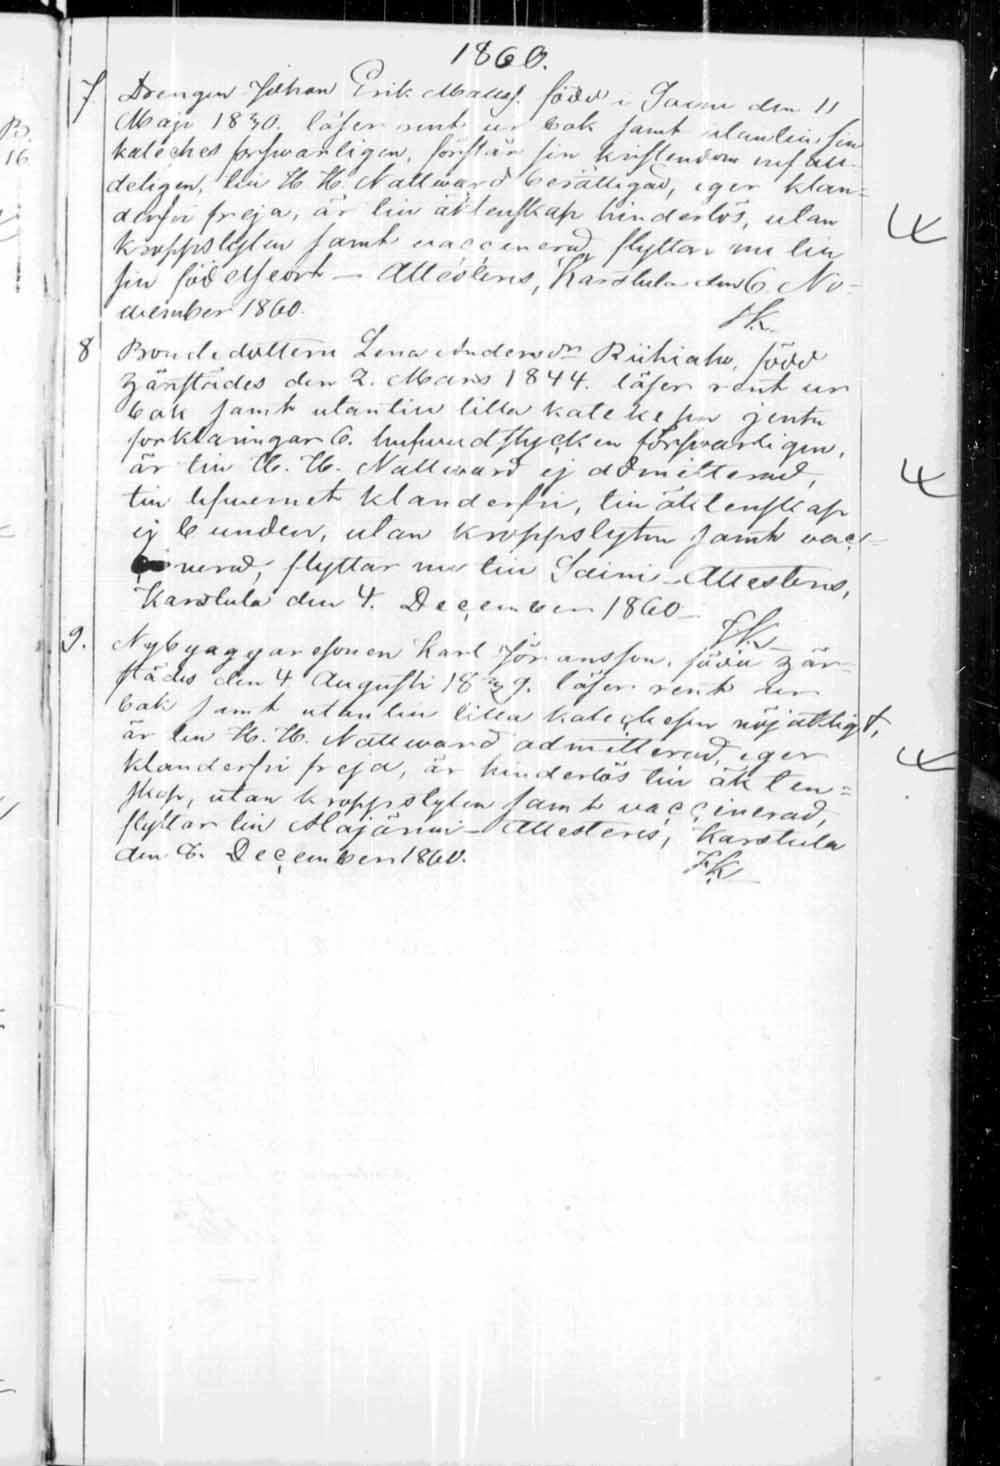 1860.
7 Drengen Johan Erik Matts. född i Saini den 11
Maji 1830. läser rent ur bok samt utantill sin
kateches försvarligen, förstår sin kristendom
deligen, till H. H. Nattward berättigad, eger klan=
derfri freja, är till äktenskap hinderlös, utan
kroppslyten samt vaccinerad, flyttar nu till
sin födelseort – Attesteras, Karstula den 6. No-
vember 1860. JK
8 Bondedottern Lena Andersdr Riihiaho, född
härstädes den 2. Mars 1844. läser rent ur
bok samt utantill lilla katekesen jente
förklaringar 6. hufvudstycken försvarligen,
är till H. H. Nattward ej admitterad,
till lefvernet klanderfri, till äktenskap
ej bunden, utan kroppslyten samt vacc-
inerad, flyttar nu till Saini – Attesteras,
Karstula den 4. December 1860 –
JK
9. Nybyggaresonen Karl Göransson, född här-
städes den 4 Augusti 18 9. läser rent ur
bok samt utantill lilla katechesen nöjaktligt,
är till H. H. Nattward admitterad, eger
klanderfri freja, är hinderlös till äkten=
skap, utan kroppslyten samt vaccinerad,
flyttar till Alajärvi – Attesteras, Karstula
den 8. December 1860.
JK
B.
16